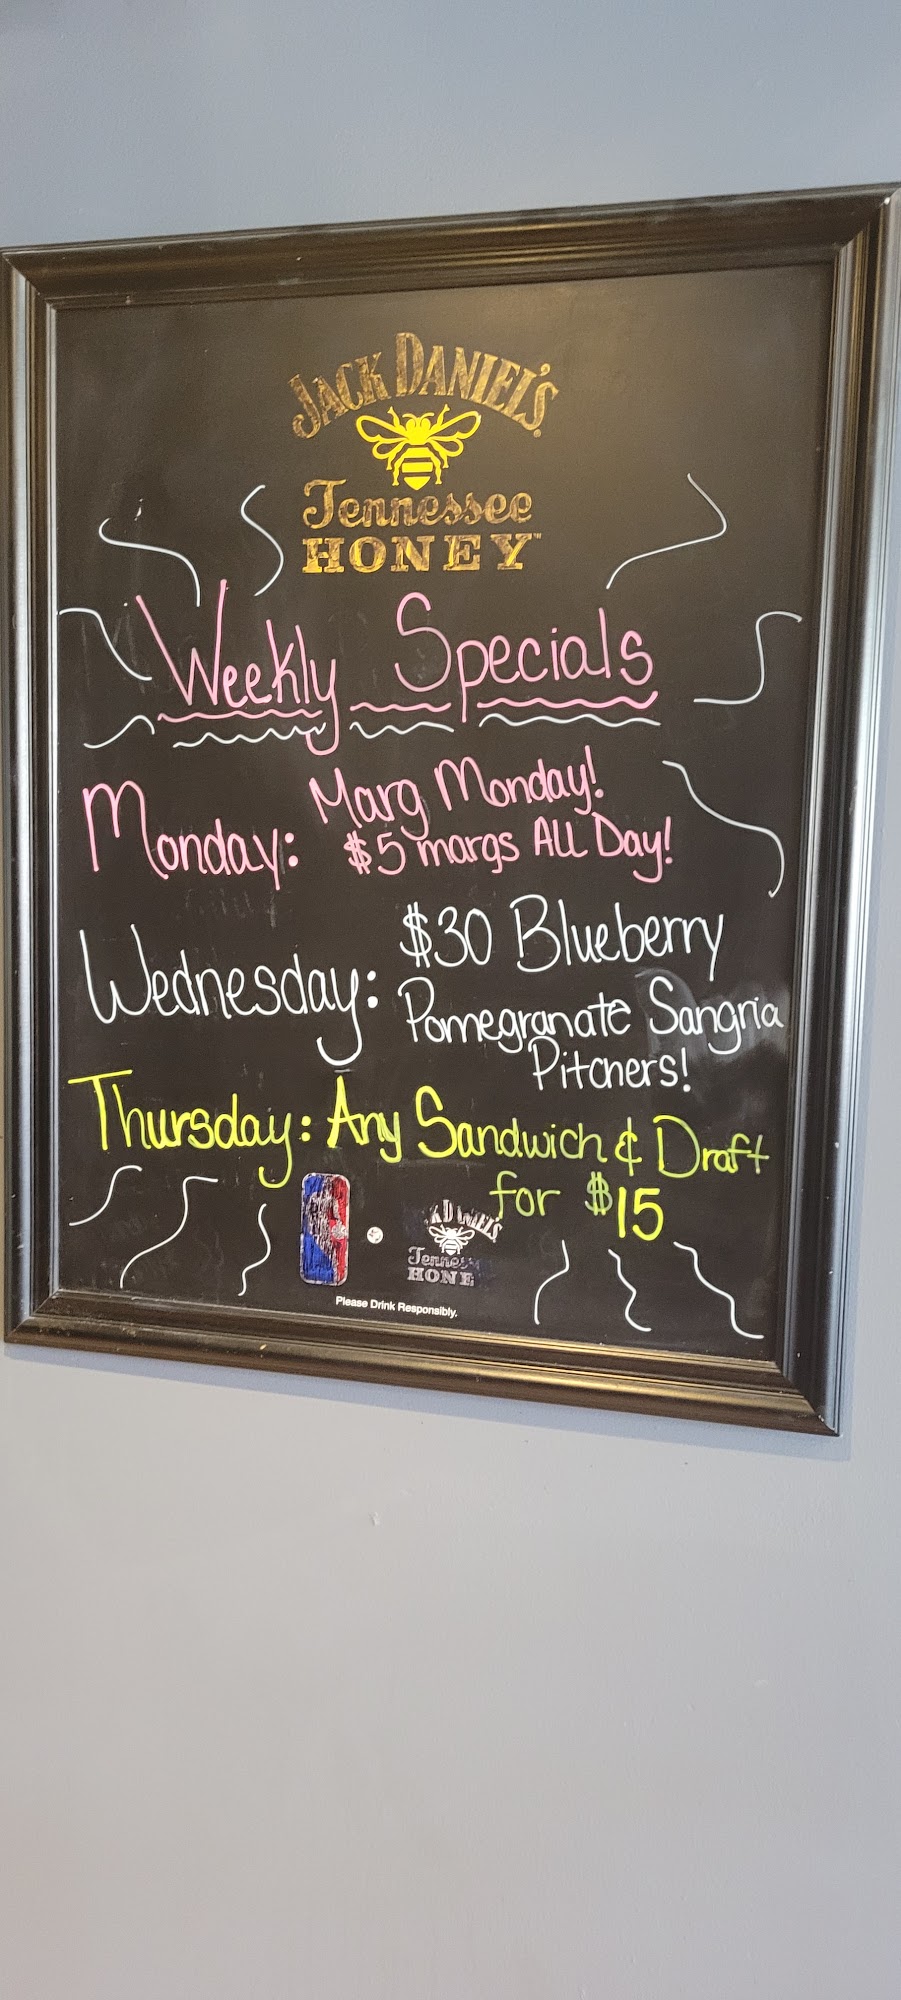 JACK DANIEL'S
Tennessee
HONEY™
Weekly Specials
Monday: Marg Monday!
$5 margs All Day!
Wednesday: $30 Blueberry
Pomegranate Sangria
Pitchers!
Thursday: Any Sandwich & Draft
for $15
DANIEL'S
Tennes
HONE
Please Drink Responsibly.